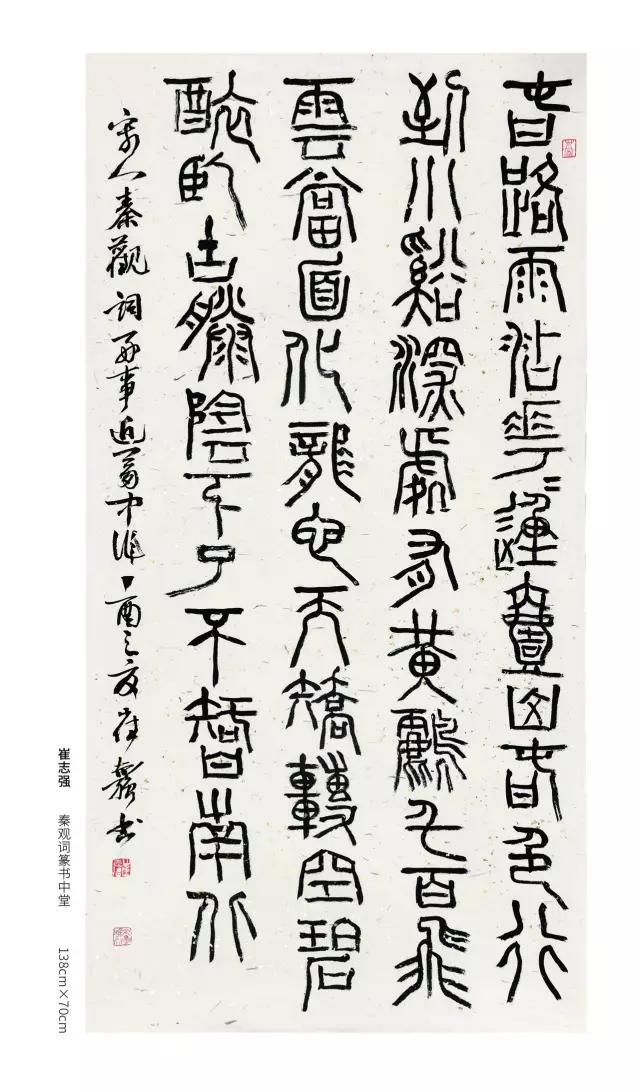 春路雨沾花〻動壹山春色行
到小谿深處有黃鸝千百飛
雲當面化龍它夭矯轉空碧
醉臥古藤陰下了不智南北
宋人秦觀詞好事近夢中作丁酉之夏崔書
崔志强 秦观词篆书中堂 138cm×70cm